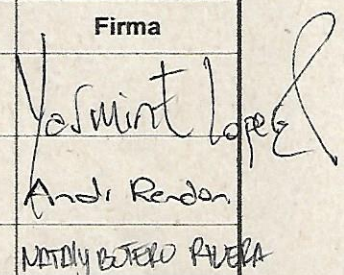 Firma
Yasmint Lopez
Andi Rendon
NATALY BOTERO RIVERA